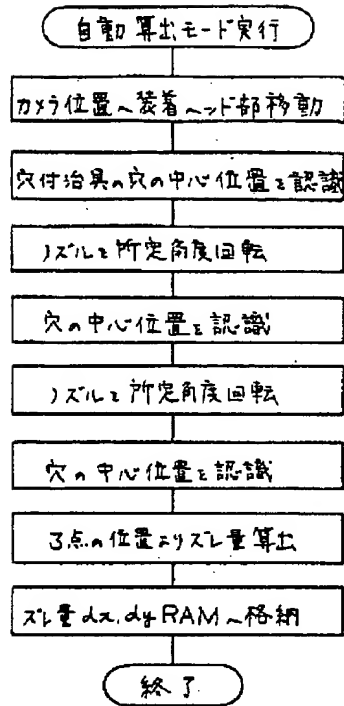 自動算出モード実行
カメラ位置へ装着ヘッド部移動
穴付治具の穴の中心位置を認識
ノズルを所定角度回転
穴の中心位置を認識
ノズルを所定角度回転
穴の中心位置を認識
3点の位置よりズレ量算出
ズレ量dx,dy RAMへ格納
終了